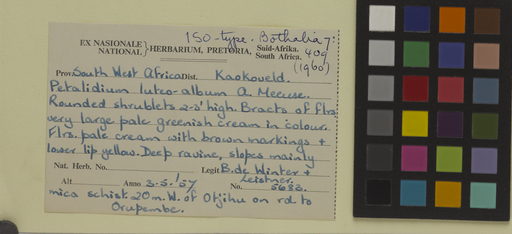 ISO-type. Bothalia 7:
409
(1960)
EX NASIONALE
NATIONAL } HERBARIUM, PRETORIA, Suid-Afrika.
South Africa.
Prov. South West Africa Dist. Kaokoveld.
Petalidium luteo-album A. Meeuse.
Rounded shrublets 2-3' high. Bracts of flrs
very large pale greenish cream in colour.
Flrs. pale cream with brown markings +
lower lip yellow. Deep ravine, slopes mainly
Nat. Herb. No. Legit B. de Winter +
Leistner.
Alt Anno 3.5.'57 No. 5633.
mica schist. 20 m. W. of Otjihu on rd to
Orupembe.